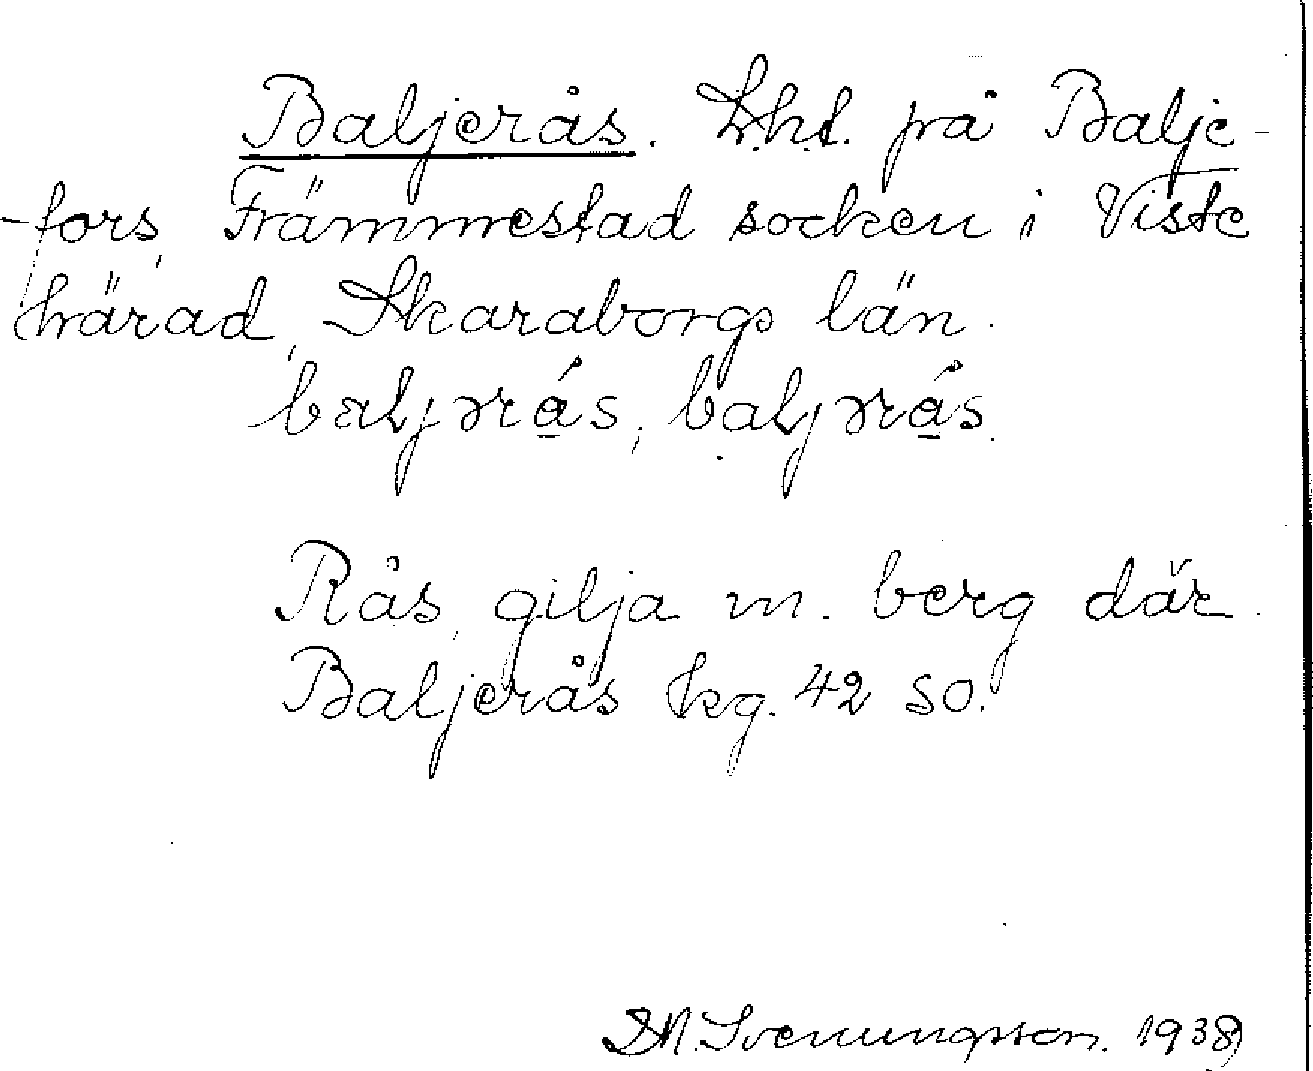 Baljerås. L.h.l. på Balje-
-fors, Främmestad socken i Viste
härad, Skaraborgs län.
baljərås, baljərås.
Rås, gilja m. berg där.
Baljerås kg. 42 SO.
Svenungsson. 1938